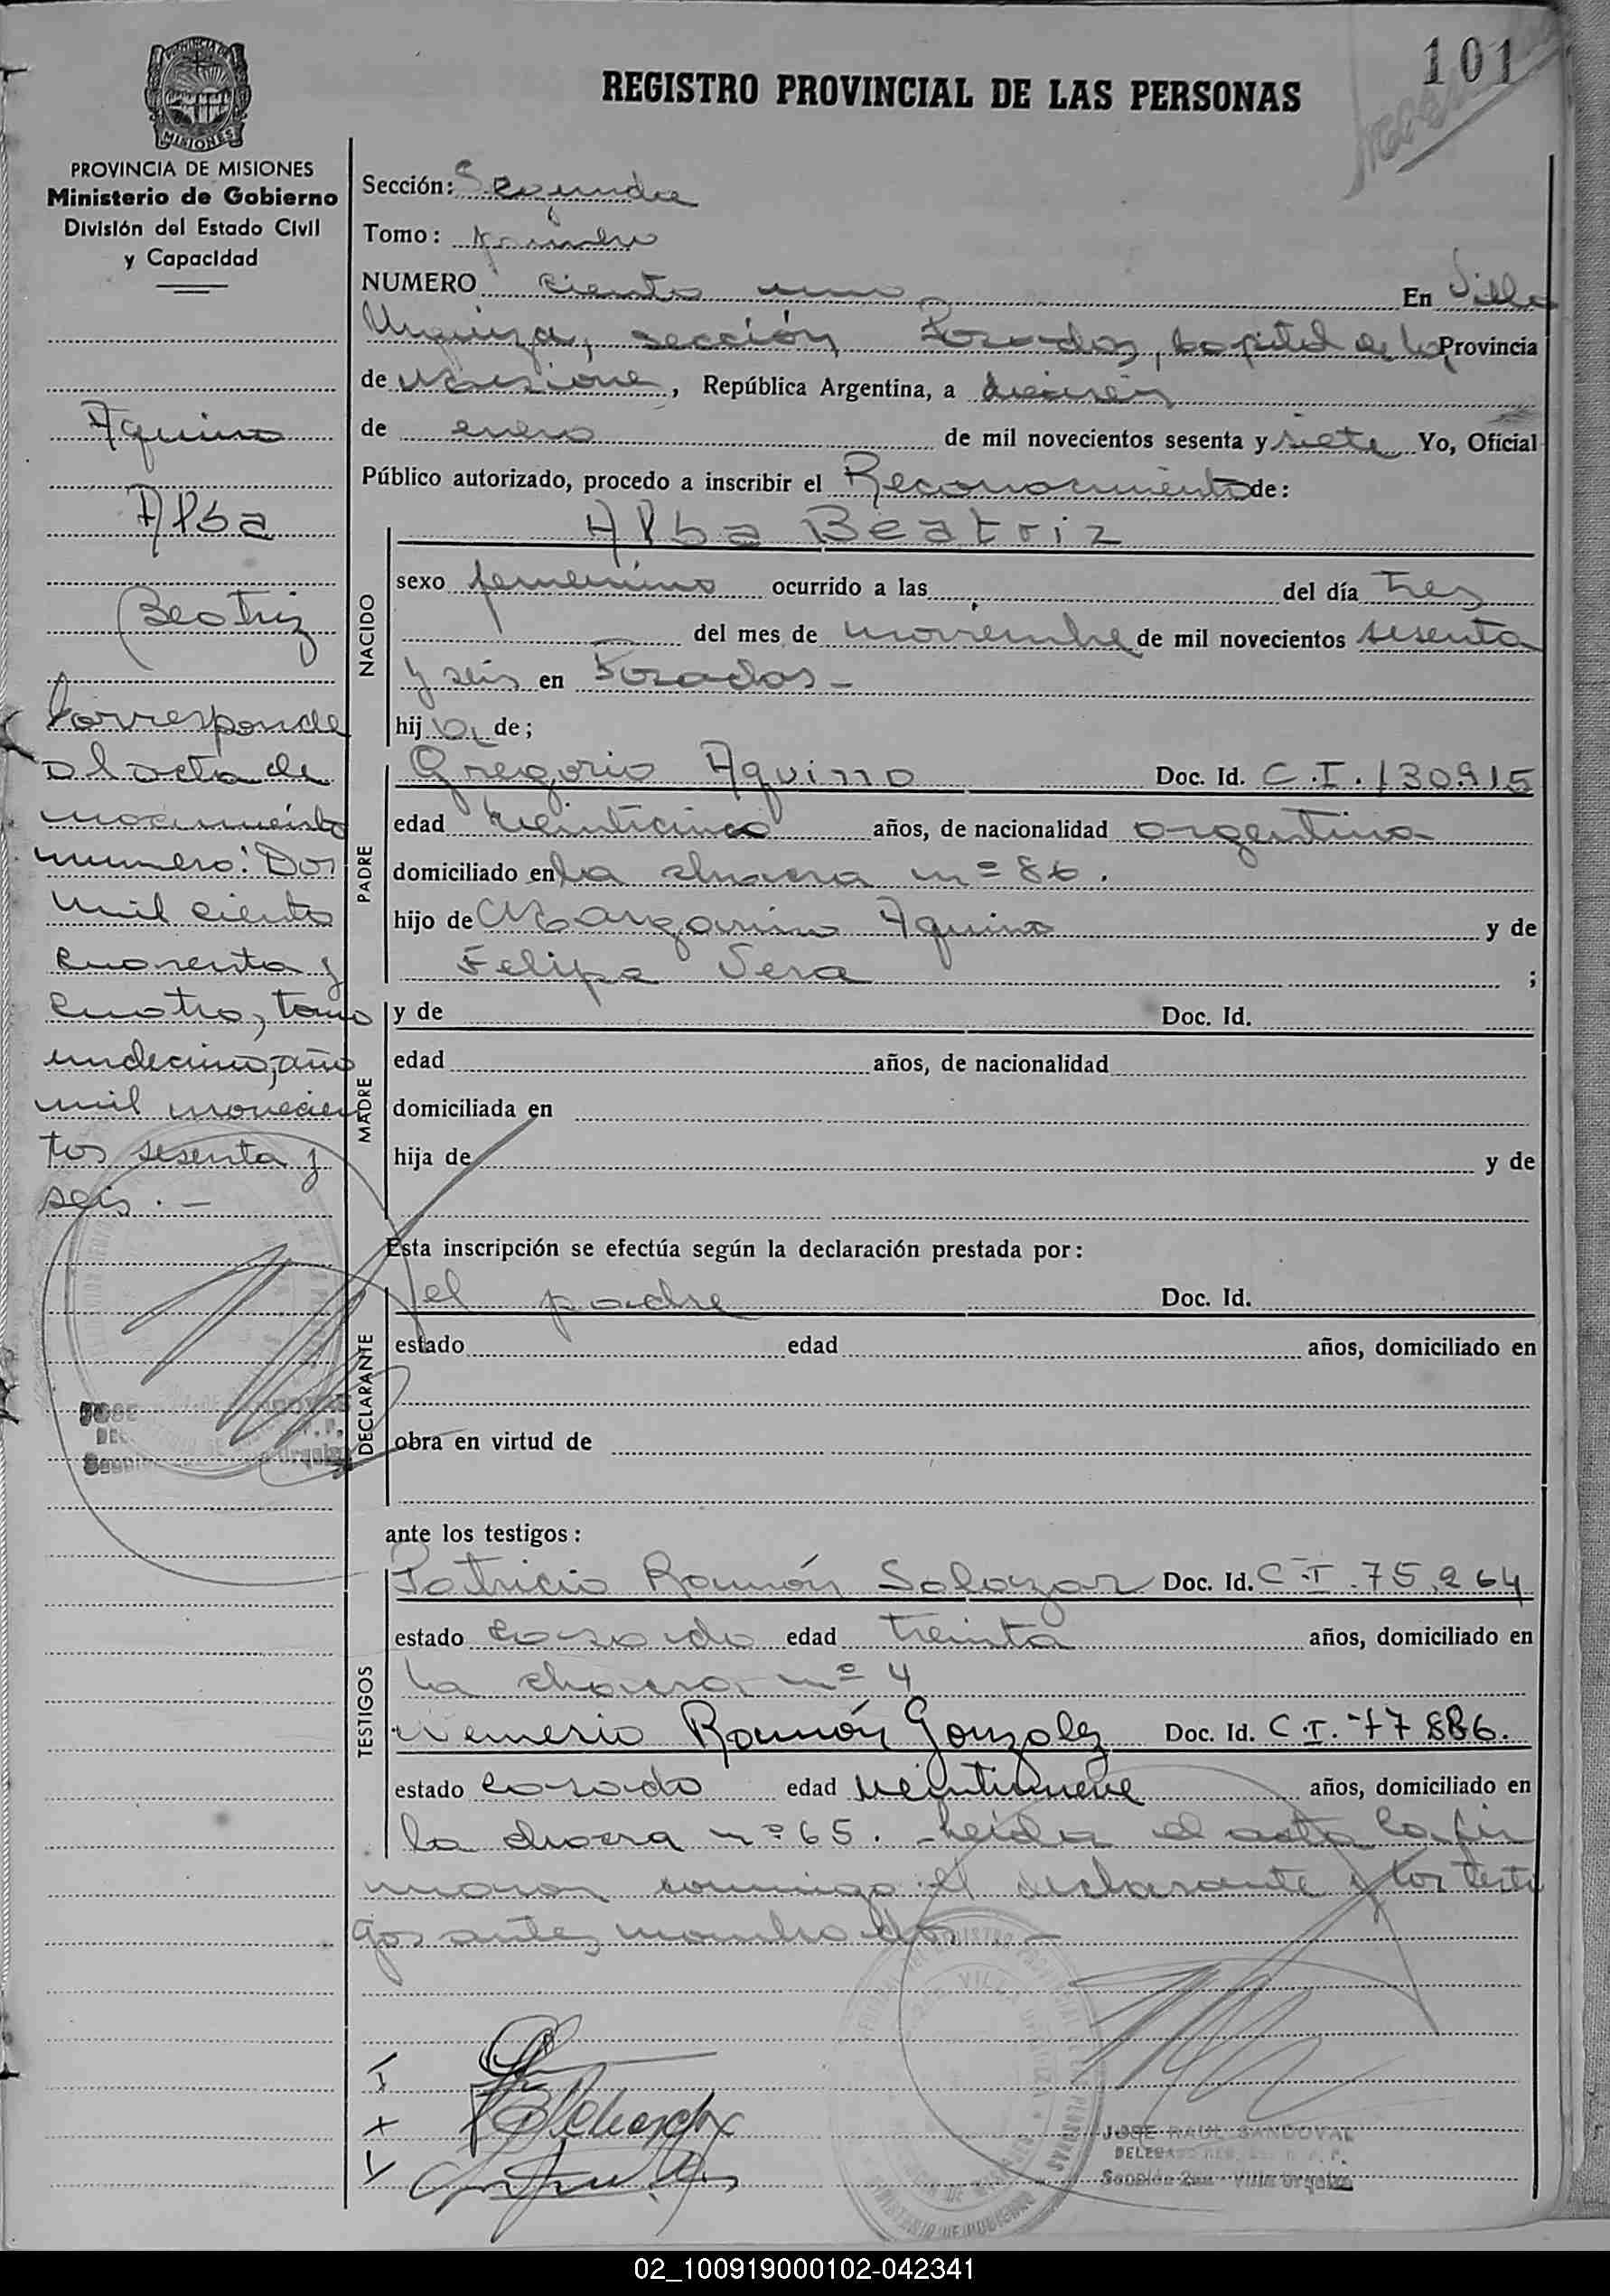 101
REGISTRO PROVINCIAL DE LAS PERSONAS
MISIONES
PROVINCIA DE MISIONES
Ministerio de Gobierno
División del Estado Civil
y Capacidad
Aquino
Alba
Beatriz
Corresponde
al acta de
nacimiento
numero: Dos
mil ciento
cuarenta y
cuatro, tomo
undecimo, año
mil novecien
tos sesenta y
seis. —
Sección: Segunda
Tomo: primero
NUMERO ciento uno En Villa
Urquiza, sección Posadas, capital de la Provincia
de Misiones, República Argentina, a
de enero de mil novecientos sesenta y siete Yo, Oficial
Público autorizado, procedo a inscribir el Reconocimiento de:
NACIDO
Alba Beatriz
sexo femenino ocurrido a las del día tres
del mes de noviembre de mil novecientos sesenta
y seis en Posadas —
hij a de;
PADRE
Gregorio Aquino Doc. Id. C.I. 130.915
edad veinticinco años, de nacionalidad argentina
domiciliado en la chacra nº 86.
hijo de Margarino Aquino y de
Felipa Sera ;
MADRE
y de Doc. Id.
edad años, de nacionalidad
domiciliada en
hija de y de
Esta inscripción se efectúa según la declaración prestada por:
DECLARANTE
el padre Doc. Id.
estado edad años, domiciliado en
obra en virtud de
ante los testigos:
TESTIGOS
Patricio Ramón Salazar Doc. Id. C.I. 75.264
estado casado edad treinta años, domiciliado en
la chacra nº 4
Nemerio Ramón Gonzalez Doc. Id. C.I. 77886.
estado casado edad veintinueve años, domiciliado en
la chacra nº 65. Leida el acta la fir
maron conmigo el declarante y los testi
gos antes nombrados —
JOSE RAUL SANDOVAL
Sección 2da - Villa Urquiza
02_100919000102-042341